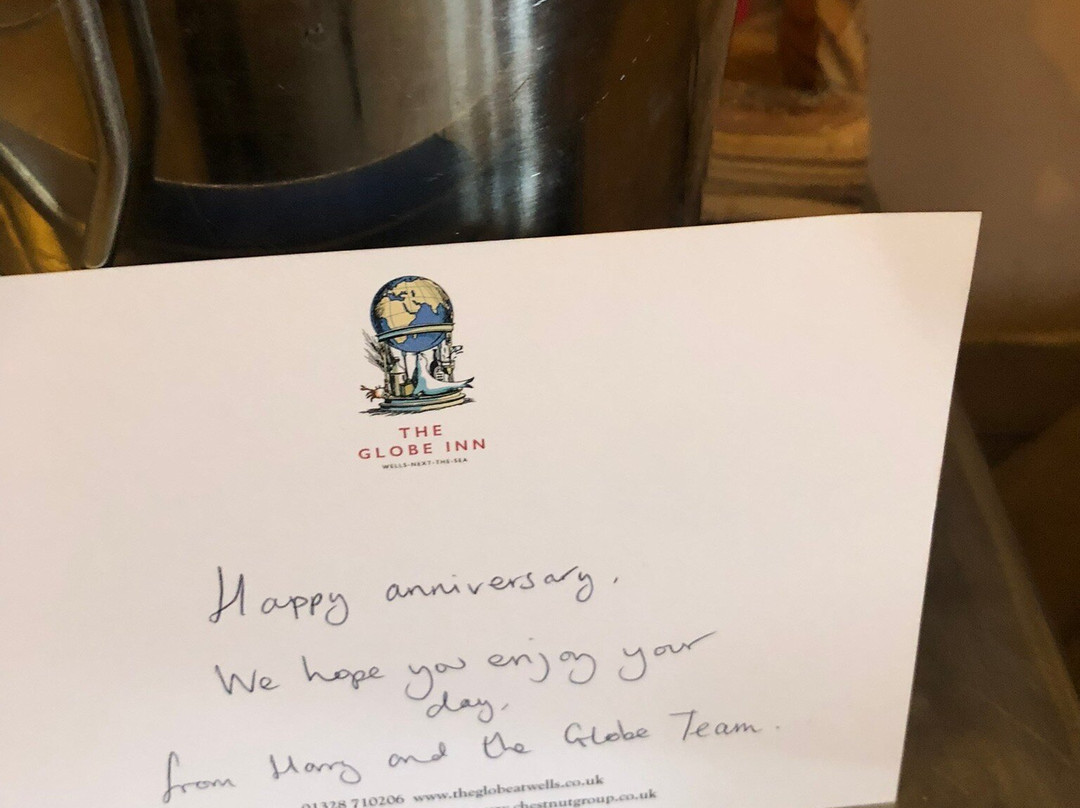 THE
GLOBE INN
WELLS-NEXT-THE-SEA
Happy anniversary,
We hope you enjoy your
day,
from Harry and the Globe Team.
01328 710206 www.theglobeatwells.co.uk
www.chestnutgroup.co.uk